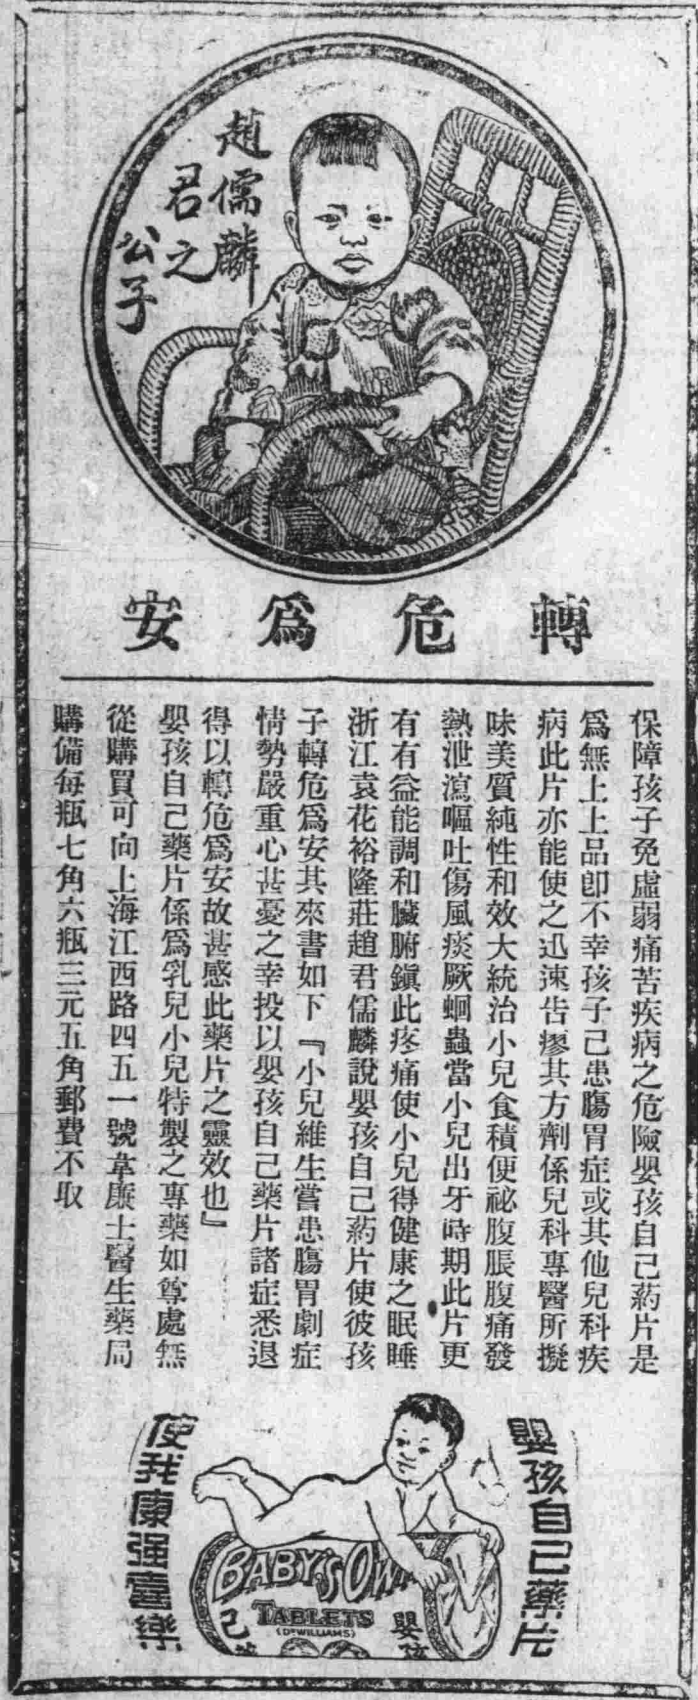 趙儒麟
君之
公子
轉危為安
保障孩子免虛弱痛苦疾病之危險嬰孩自己葯片是
為無上上品卽不幸孩子己患腸胃症或其他兒科疾
病此片亦能使之迅速告瘳其方劑係兒科專醫所擬
味美質純性和效大統治小兒食積便祕腹脹腹痛發
熱泄瀉嘔吐傷風痰厥蛔蟲當小兒出牙時期此片更
有有益能調和臟腑鎭此疼痛使小兒得健康之眠睡
浙江袁花裕隆莊趙君儒麟說嬰孩自己葯片使彼孩
子轉危為安其來書如下『小兒維生嘗患腸胃劇症
情勢嚴重心甚憂之幸投以嬰孩自己藥片諸症悉退
得以轉危為安故甚感此藥片之靈效也』
嬰孩自己藥片係為乳兒小兒特製之專藥如尊處無
從購買可向上海江西路四五一號韋廉士醫生藥局
購備每瓶七角六瓶三元五角郵費不取
嬰孩自己藥片
使我康强喜樂
BABY'S OWN
TABLETS
(DR WILLIAMS)
嬰孩
己藥